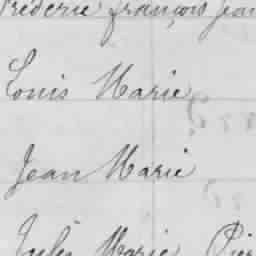 Frédéric françois Jean
Louis Marie
Jean Marie
Jules Marie